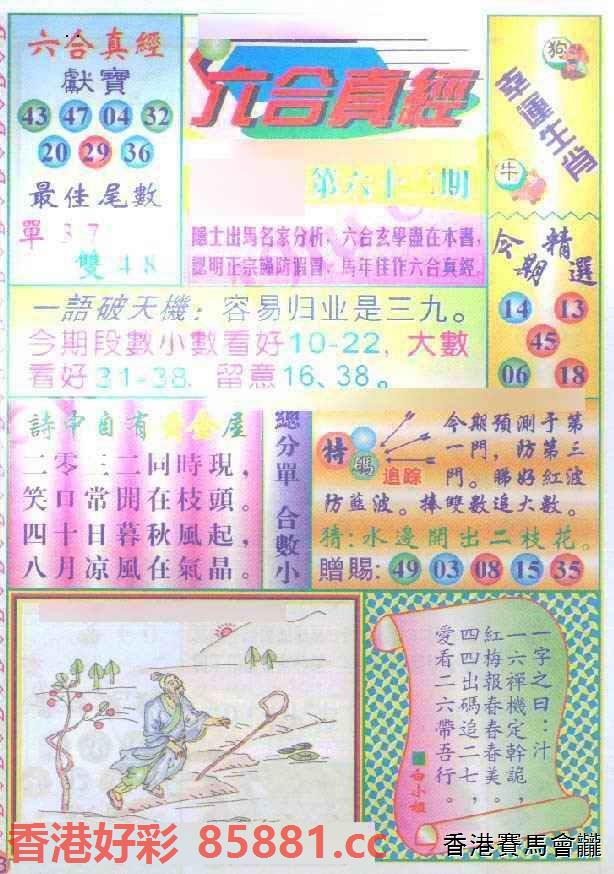 六合真經
獻寶
43 47 04 32
20 29 36
最佳尾數
單 37
雙 48
六合真經
第六十二期
隱士出馬名家分析，六合玄學盡在本書，
認明正宗歸防假冒，馬年佳作六合真經
狗
幸運生肖
牛
今期精選
14 13
45
06 18
一語破天機：容易归业是三九。
今期段數小數看好10-22，大數
看好31-38，留意16、38。
詩中自有黃金屋
二零三二同時現，
笑口常開在枝頭。
四十日暮秋風起，
八月凉風在氣晶。
總分單 合數小
特碼追踪
今期預測于第
一門，防第三
門。睇好紅波
防藍波。捧雙數追大數。
猜：水邊開出二枝花。
贈賜：49 03 08 15 35
一字之曰：汁
一六禪機定幹詭，
紅梅報春春春美。
四四出碼追二七，
愛看二六帶吾行。
白小姐
香港好彩 85881.cc
香港賽馬會